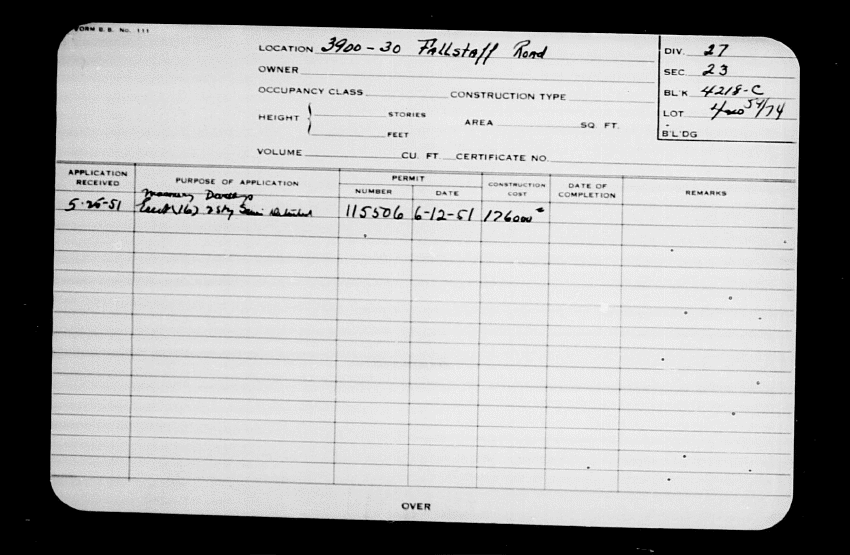 FORM B. B. No. 111
LOCATION 3900-30 Fallstaff Road
OWNER
OCCUPANCY CLASS CONSTRUCTION TYPE
HEIGHT STORIES
FEET
AREA SQ. FT.
VOLUME CU. FT. CERTIFICATE NO.
DIV. 27
SEC. 23
BL'K 4218-C
LOT 54/74
B'L'DG
APPLICATION RECEIVED PURPOSE OF APPLICATION PERMIT NUMBER DATE CONSTRUCTION COST DATE OF COMPLETION REMARKS
Masonry Dwellings
5-25-51 Erect (16) 2 Sty Semi Detached 115506 6-12-51 176000
OVER